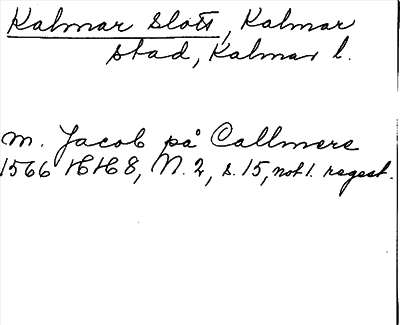 Kalmar slott, Kalmar
stad, Kalmar l.
m. Jacob på Callmers
1566 HH 8, N. 2, s. 15, not 1. regest.